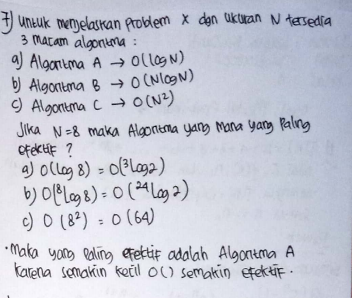 7) Untuk menjelaskan Problem X dgn ukuran N tersedia
3 macam algoritma :
a) Algoritma A → O(log N)
b) Algoritma B → O(N log N)
c) Algoritma C → O(N²)
Jika N=8 maka Algoritma yang mana yang Paling
efektif ?
a) O(log 8) = O(³log2)
b) O(⁸log 8) = O(²⁴log 2)
c) O (8²) = O (64)
• Maka yang Paling efektif adalah Algoritma A
karena semakin kecil O() semakin efektif.